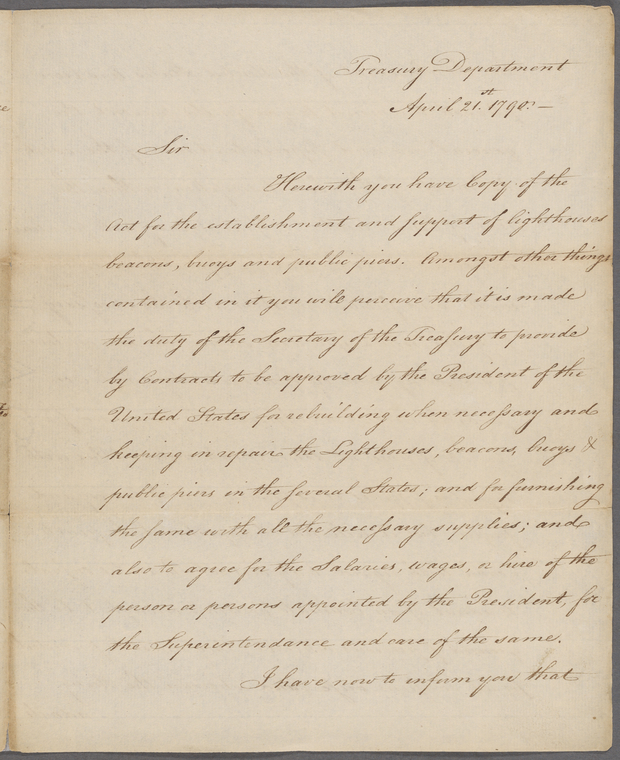 Treasury Department
April 21.st 1790.—
Sir
Herewith you have Copy of the
Act for the establishment and support of lighthouses
beacons, buoys and public piers. Amongst other things
contained in it you will perceive that it is made
the duty of the Secretary of the Treasury to provide
by Contracts to be approved by the President of the
United States for rebuilding when necessary and
keeping in repair the Lighthouses, beacons, buoys &
public piers in the several States; and for furnishing
the same with all the necessary supplies; and
also to agree for the Salaries, wages, or hire of the
person or persons appointed by the President, for
the Superintendance and care of the same.
I have now to inform you that